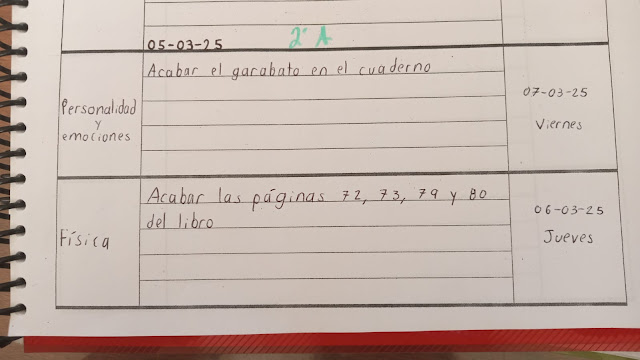 05-03-25 2º A
Personalidad
y
emociones
Acabar el garabato en el cuaderno
07-03-25
Viernes
Física
Acabar las páginas 72, 73, 79 y 80
del libro
06-03-25
Jueves